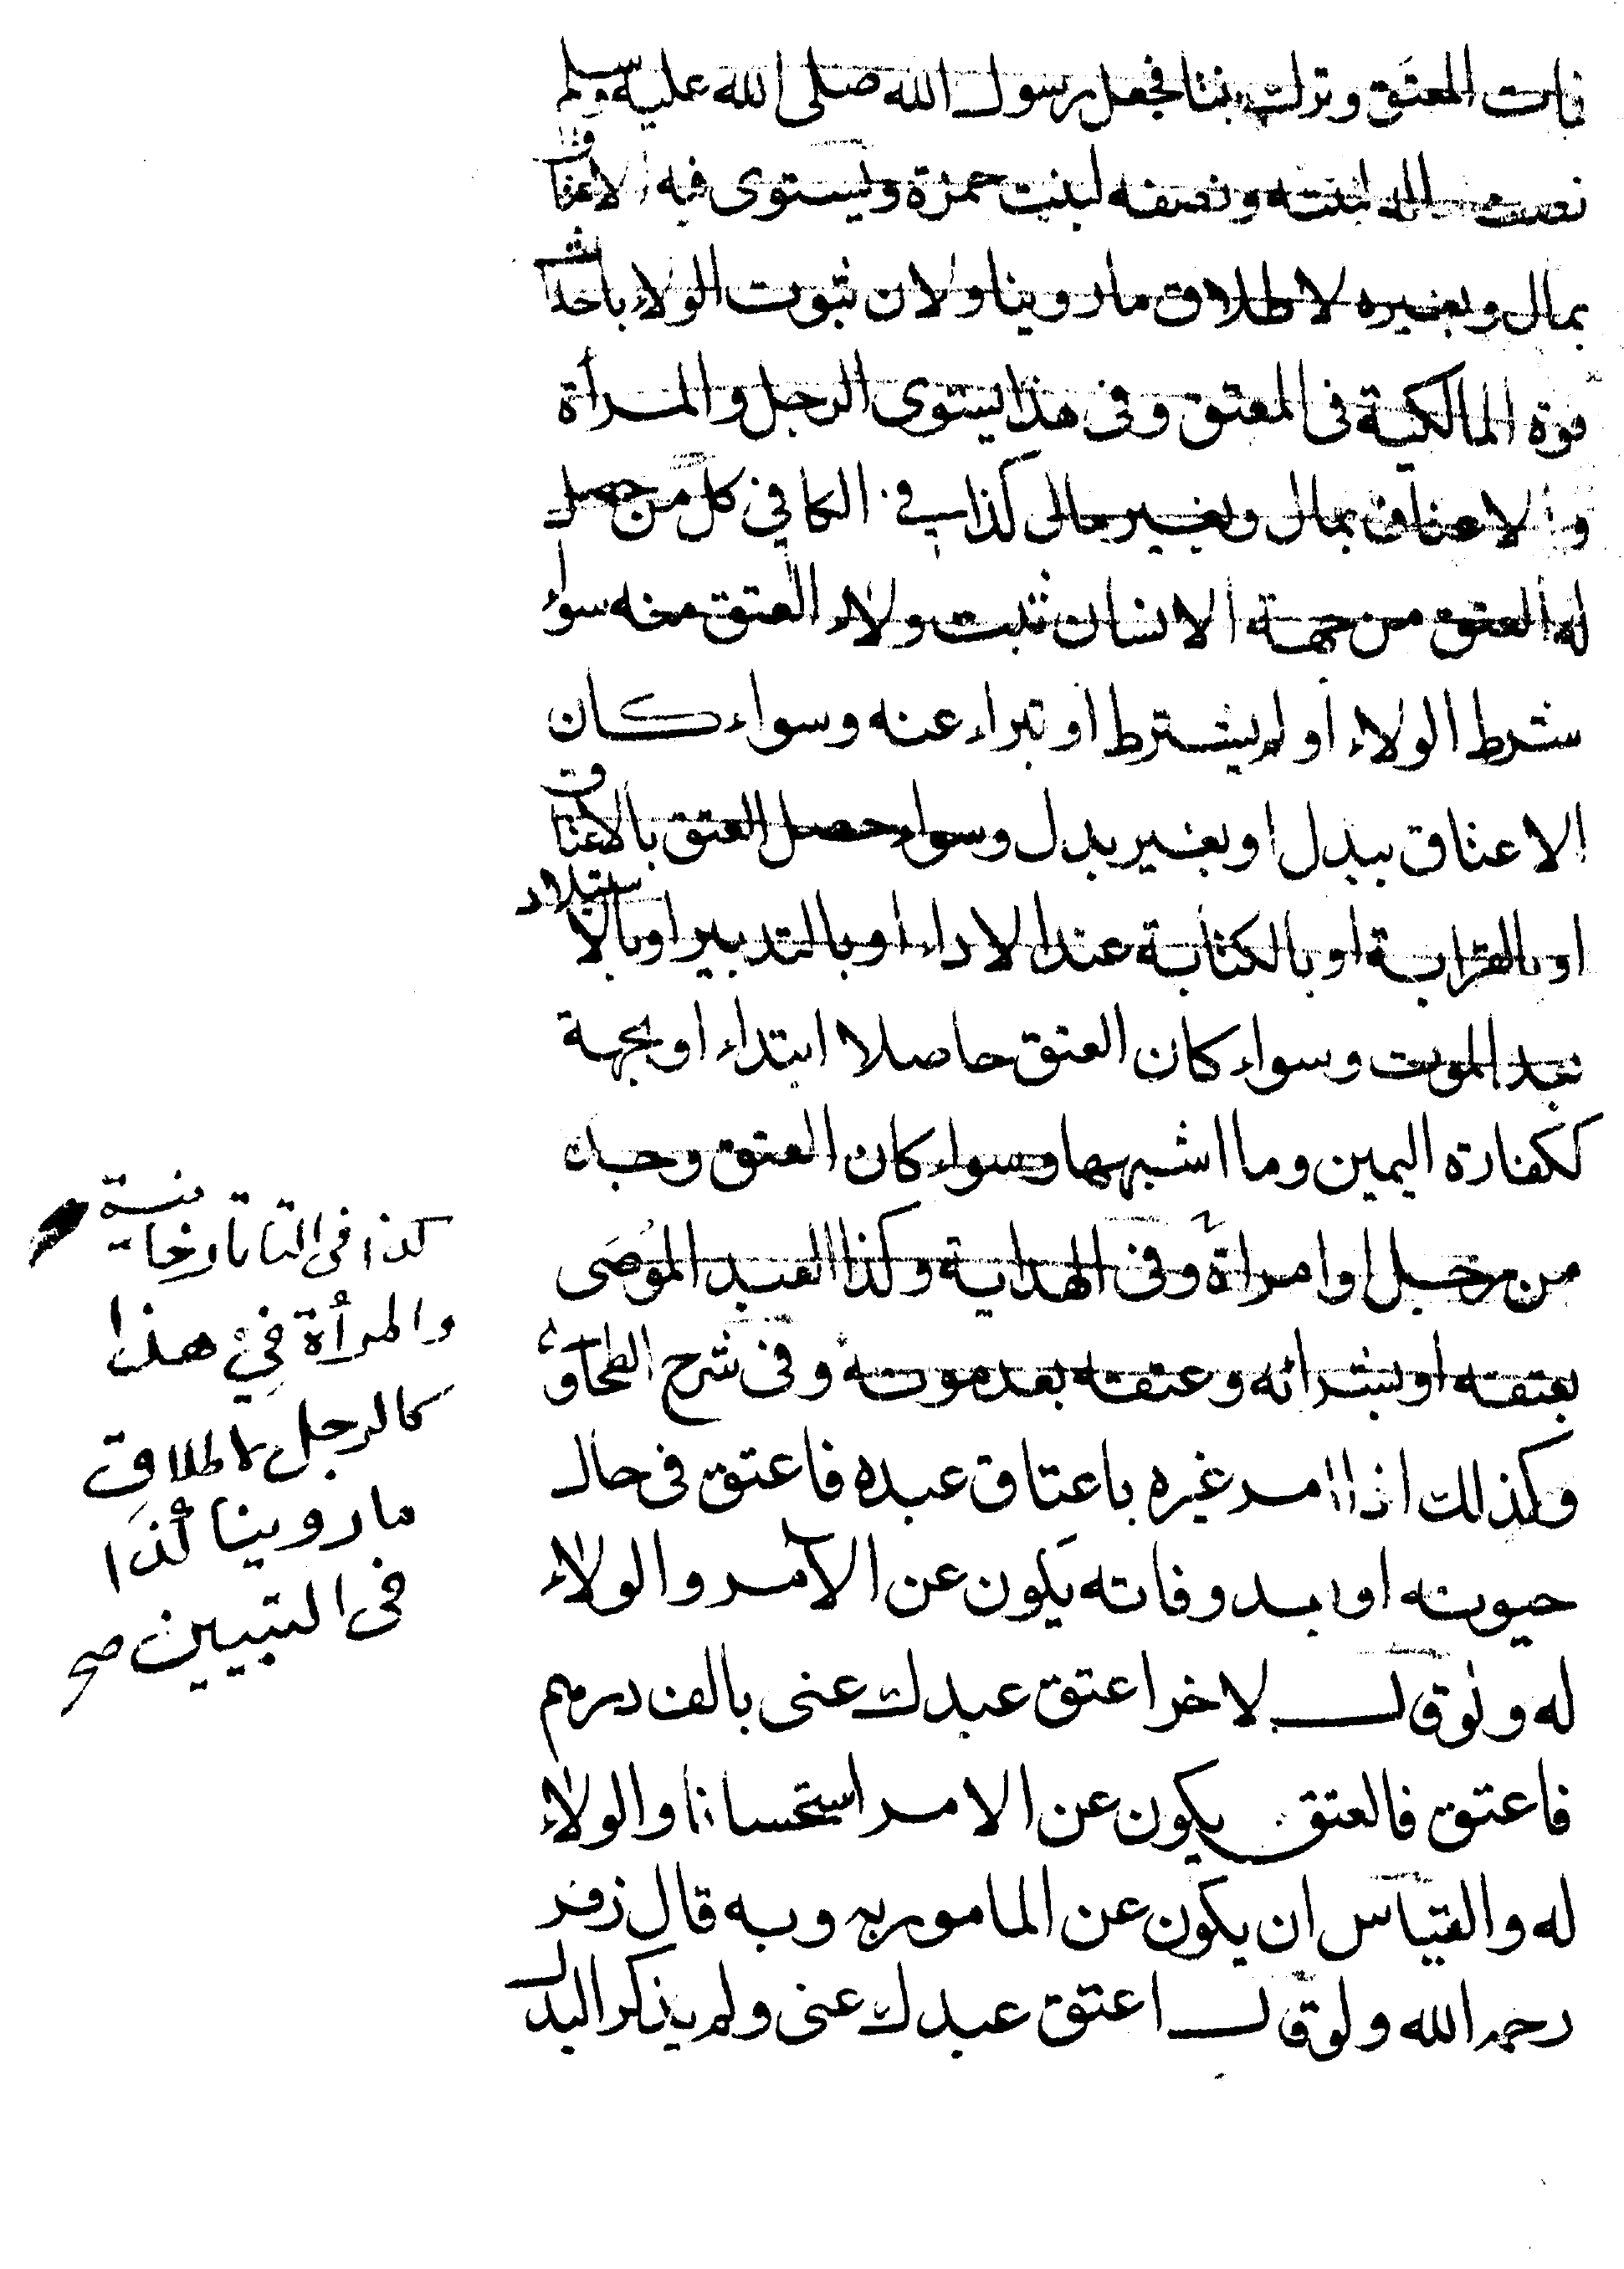 فمات المعتق وترك بنتا فجعل رسول الله صلى الله عليه وسلم
نصف ماله لبنته ونصفه لبنت حمزة ويستوى فيه الاعتاق
بمال وبغيره لاطلاق ما روينا ولان ثبوت الولاء باحداث
قوة المالكية فى المعتق وفى هذا يستوى الرجل والمرأة
والاعتاق بمال وبغير مال كذا فى الكافى كل من حصل
له العتق من جهة الانسان ثبت ولاء العتق منه سواء
شرط الولاء او لم يشترط او تبراء عنه وسواء كان
الاعتاق ببدل او بغير بدل وسواء حصل العتق بالاعتاق
او بالقرابة او بالكتابة عند الاداء او بالتدبير او بالاستيلاد
بعد الموت وسواء كان العتق حاصلا ابتداء او بجهة
ككفارة اليمين وما اشبهها وسواء كان العتق وجد
من رجل او امرأة وفى الهداية وكذا العبد الموصى
بعتقه او بشرائه وعتقه بعد موته وفى شرح الطحاوى
وكذلك اذا امر غيره باعتاق عبده فاعتق فى حال
حيوته او بعد وفاته يكون عن الآمر والولاء
له ولو قال لاخر اعتق عبدك عنى بالف درهم
فاعتق فالعتق يكون عن الامر استحسانا والولاء
له والقياس ان يكون عن المامور به وبه قال زفر
رحمه الله ولو قال اعتق عبدك عنى ولم يذكر البدل
كذا فى التاتارخانية
والمرأة فى هذا
كالرجل لاطلاق
ما روينا كذا
فى التبيين صح